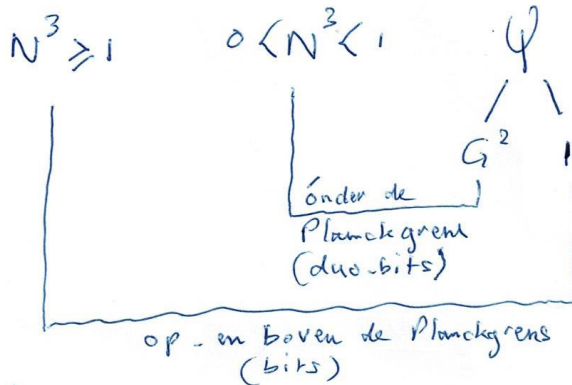 N³ ⩾ 1 0 < N³ < 1 φ
G² 1
ónder de
Planckgrens
(duo-bits)
op- en boven de Planckgrens
(bits)